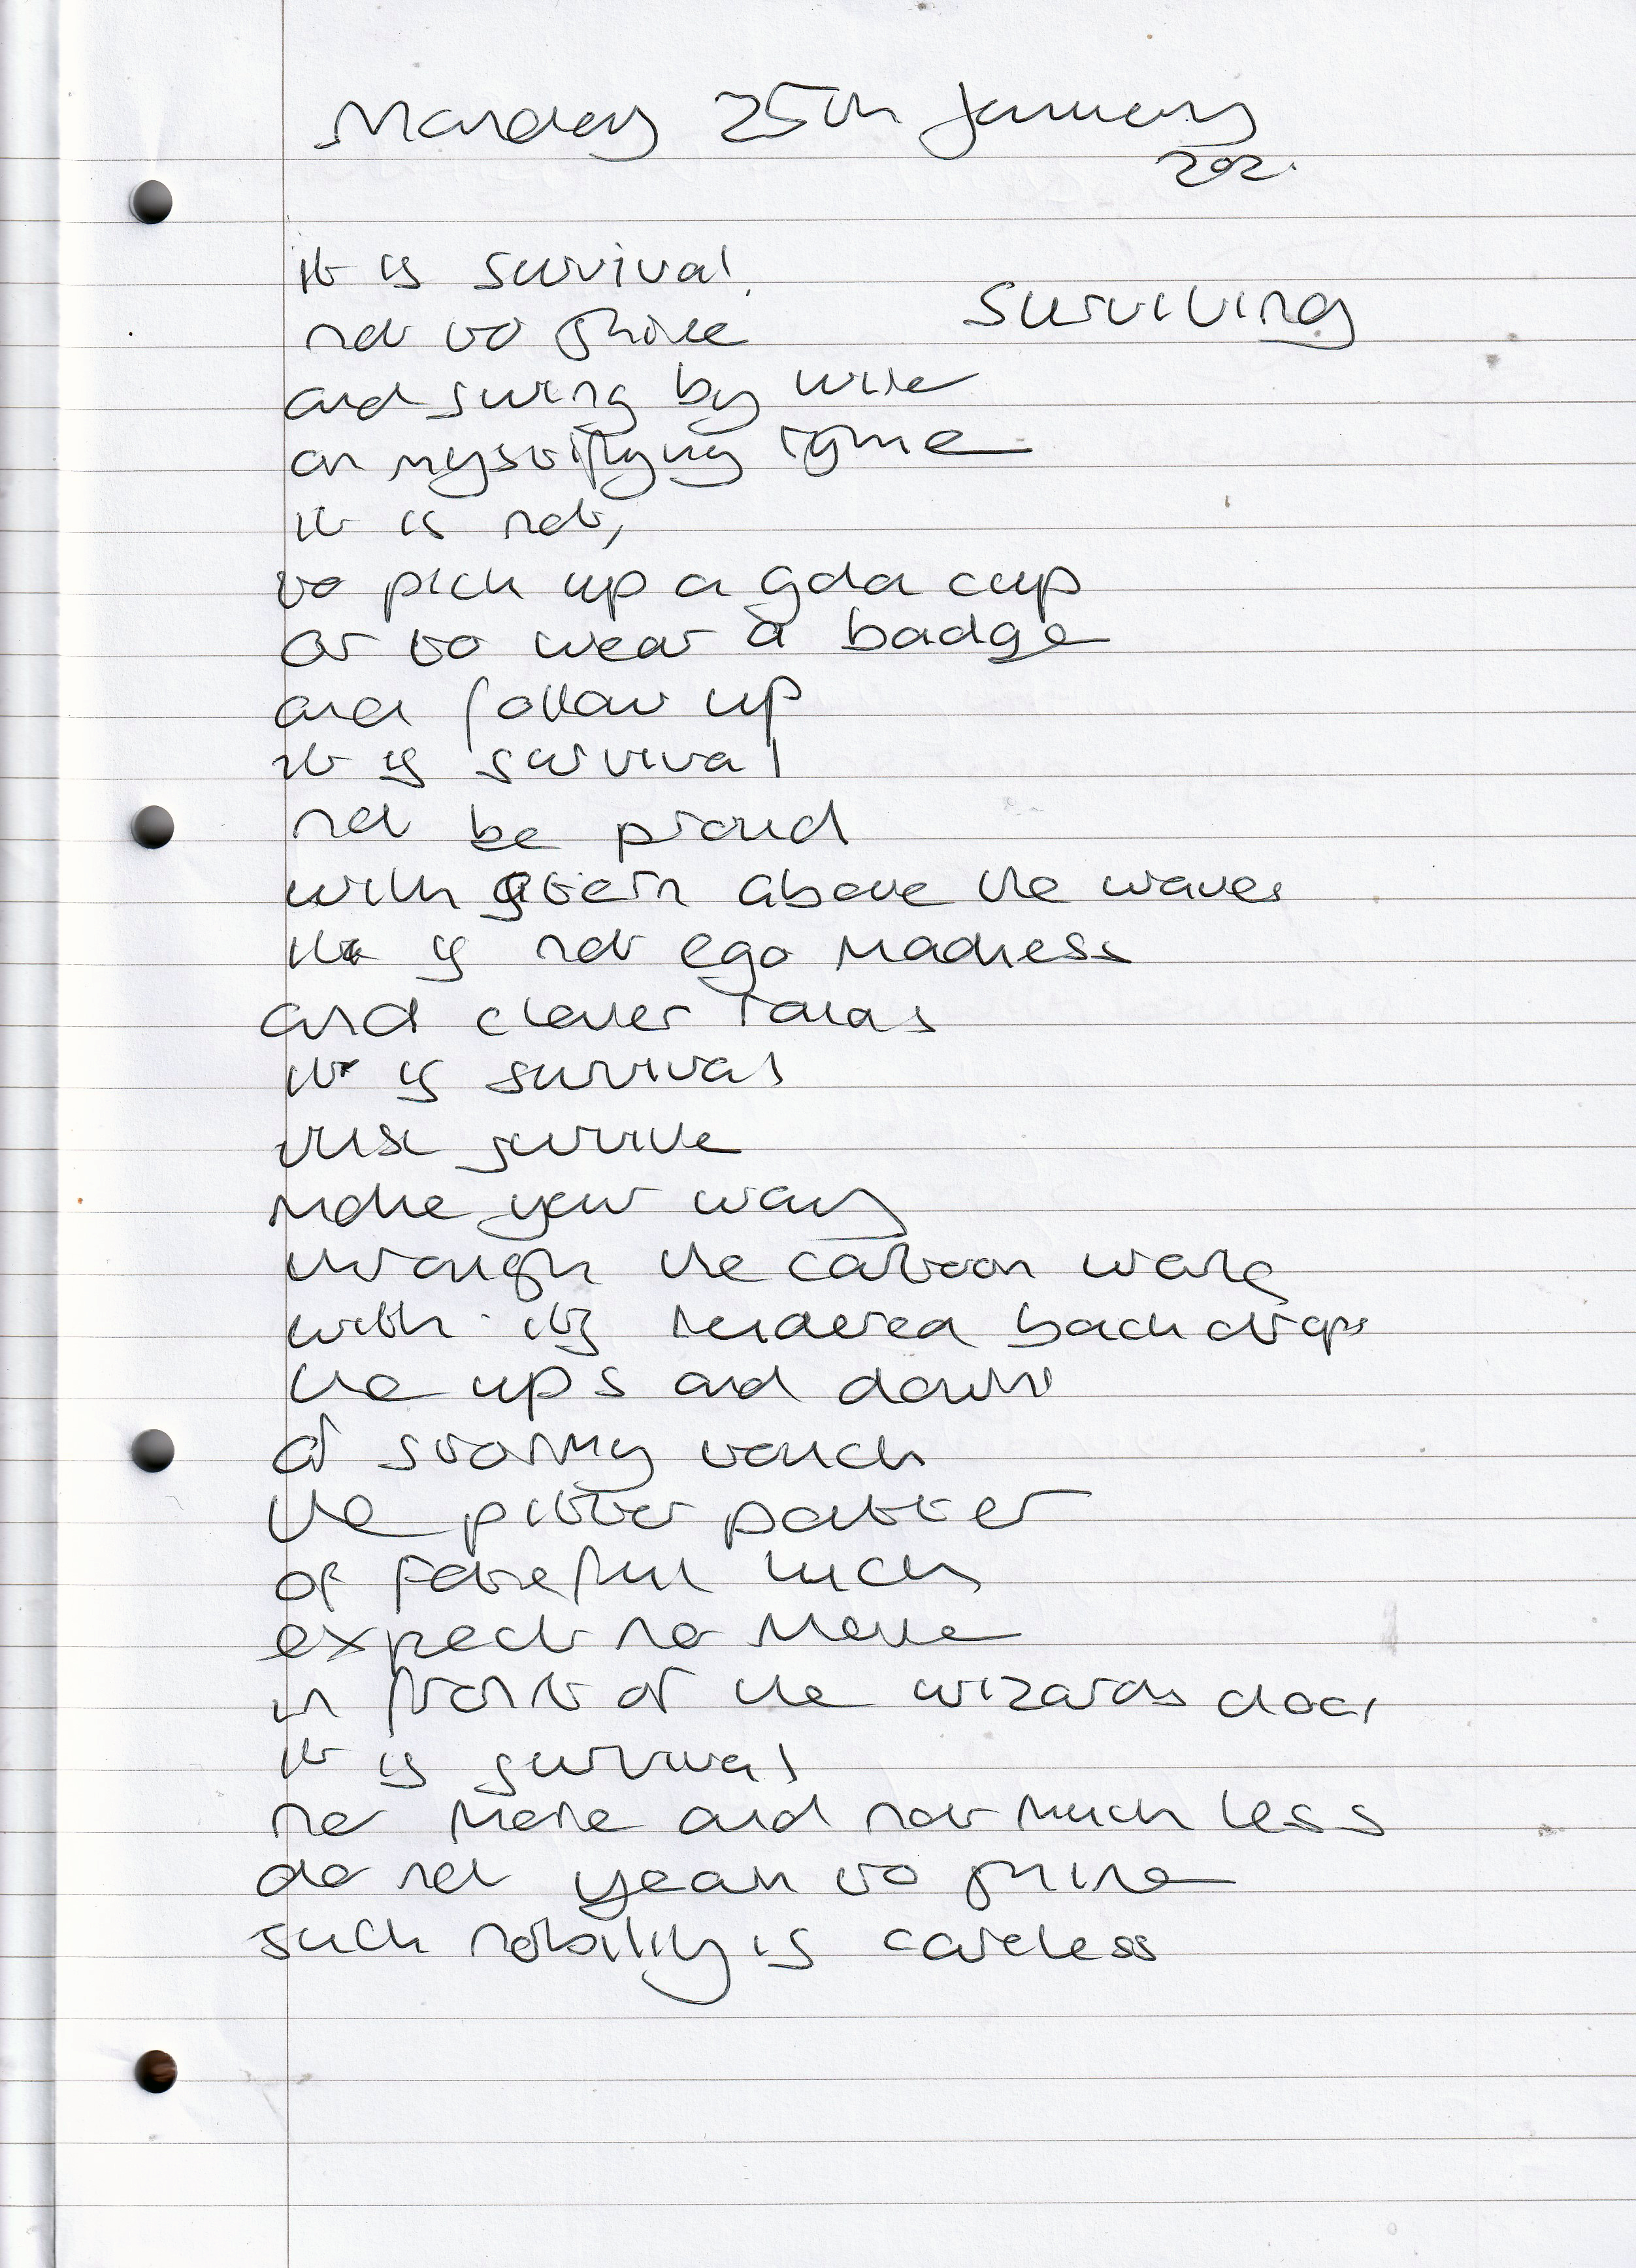 Monday 25th January
202.
Surviving
it is survival,
not to shine
and swing by wire
on mystifying
it is not,
to pick up a gold cup
or to wear a badge
and follow up
it is survival
not be proud
with above the waves
it is not ego madness
and clever
it is survival
just survive
make your way
through the cartoon world
with its rendered backdrops
the ups and downs
of stormy touch
the pitter patter
of fateful luck
expect no more
in front of the wizards door
it is survival
no more and not much less
do not yearn to shine
such nobility is careless